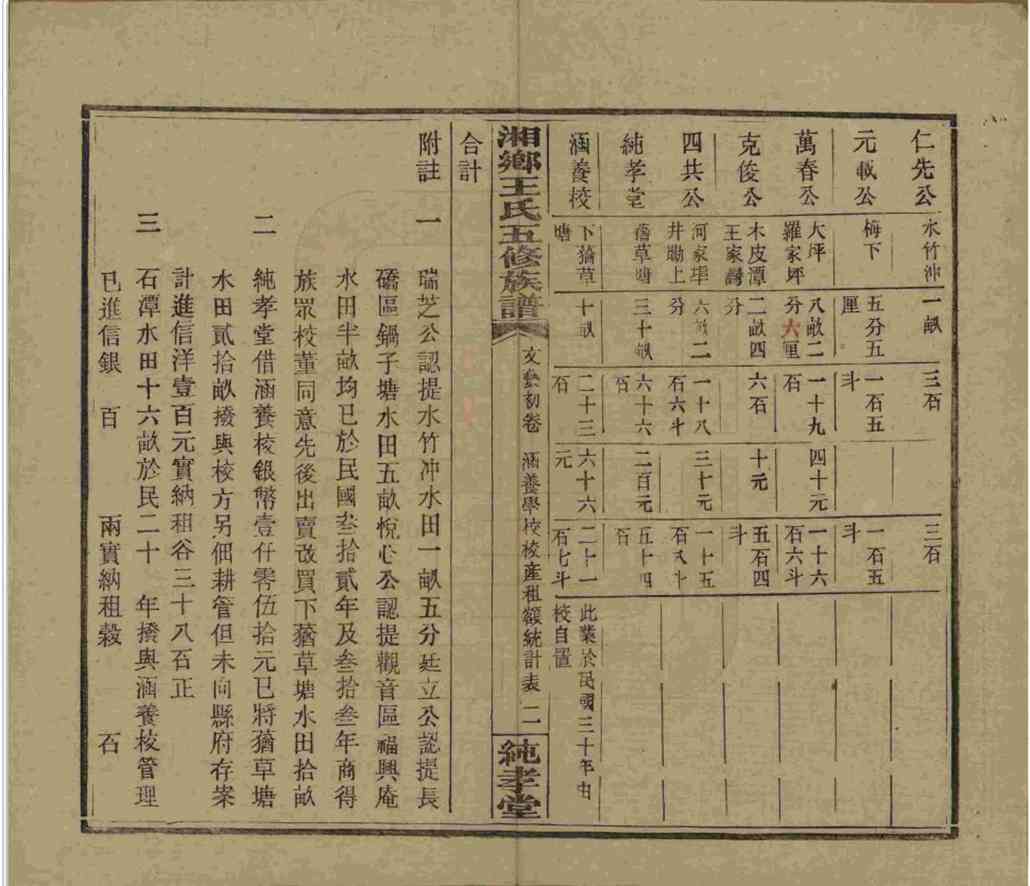 仁先公
水竹冲
一畝
三石
三石
元載公
梅下
五分五
厘
一石五
斗
一石五
斗
萬春公
大坪
羅家坪
八畝二
分六厘
一十九
石
四十元
一十六
石六斗
克俊公
木皮潭
王家灣
二畝四
分
六石
十元
五石四
斗
四共公
河家垻
井勘上
六畝二
分
一十八
石六斗
三十元
一十五
石八斗
純孝堂
蕕草塘
三十畝
六十六
石
二百元
五十四
石
涵養校
下蕕草
塘
十畝
二十三
石
六十六
元
二十一
石七斗
此業於民國三十年由
校自置
湘鄉王氏五修族譜
文藝初卷
涵養學校校產租額統計表
二
純孝堂
合計
附註
一
瑞芝公認提水竹冲水田一畝五分廷立公認提長
磽區鍋子塘水田五畝悅心公認提觀音區福興庵
水田半畝均已於民國叁拾貳年及叁拾叁年商得
族眾校董同意先後出賣改買下蕕草塘水田拾畝
二
純孝堂借涵養校銀幣壹仟零伍拾元已將蕕草塘
水田貳拾畝撥與校方另佃耕管但未向縣府存案
計進信洋壹百元實納租谷三十八石正
三
石潭水田十六畝於民二十 年撥與涵養校管理
已進信銀 百 兩實納租穀 石